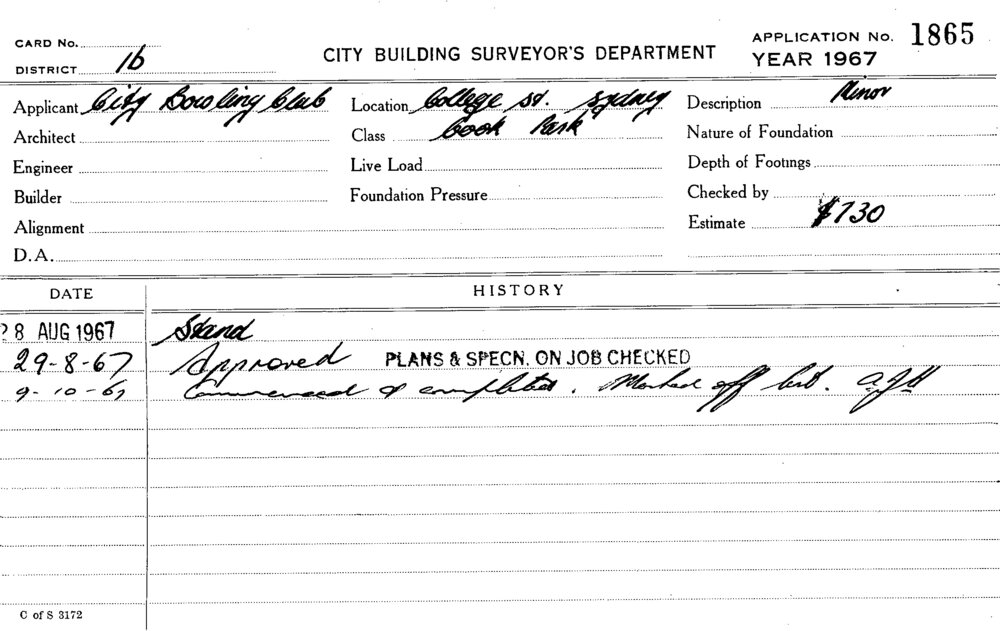 CARD No.
DISTRICT 1b
CITY BUILDING SURVEYOR'S DEPARTMENT
APPLICATION No. 1865
YEAR 1967
Applicant City Bowling Club Location College St. Sydney Description Minor
Architect Class Cook Park Nature of Foundation
Engineer Live Load Depth of Footings
Builder Foundation Pressure Checked by
Alignment Estimate $730
D.A.
DATE HISTORY
28 AUG 1967 Stand
29-8-67 Approved PLANS & SPECN. ON JOB CHECKED
9-10-67 Commenced & completed. Marked off list. AJH
C of S 3172